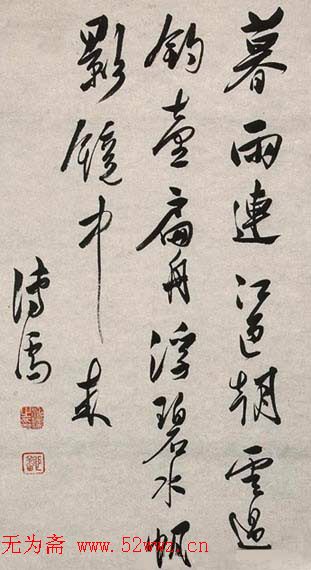 暮雨連江色朝雲過
釣臺扁舟浮碧水帆
影鏡中來
溥儒
无为斋 www.52wwz.cn